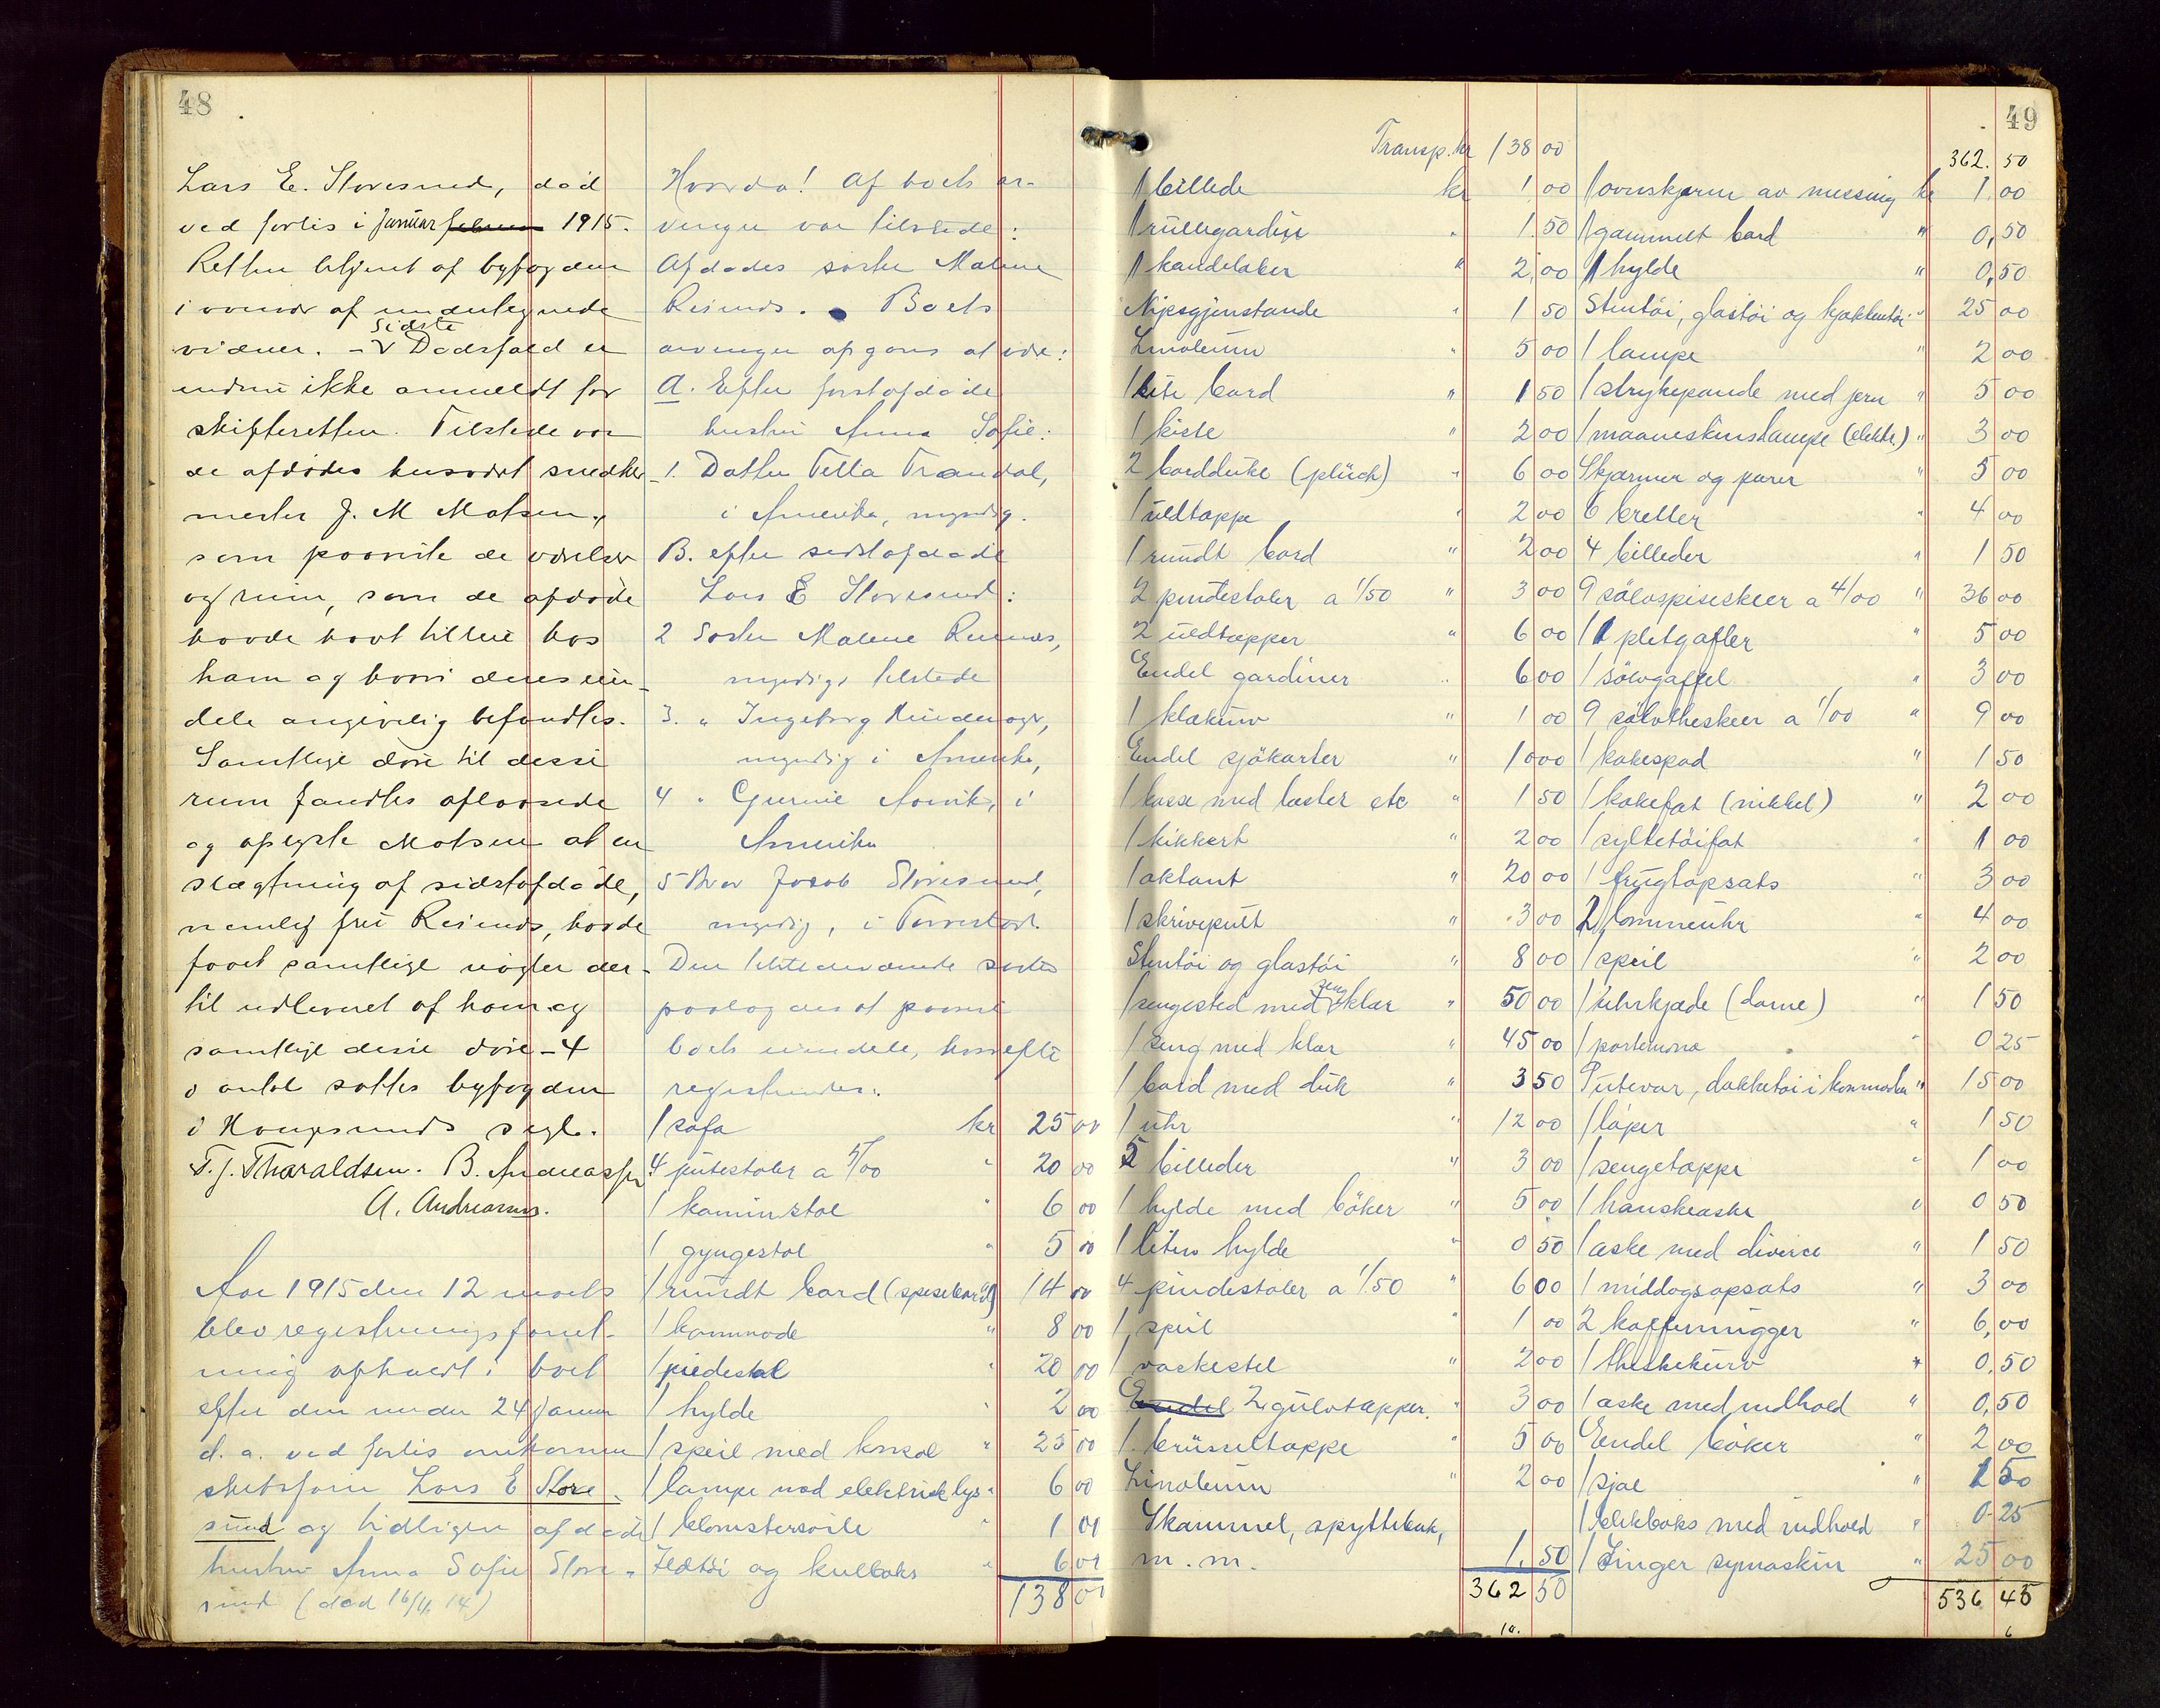 48
Lars E. Storesund, död
ved forlis i januar februar 1915.
Retten betjent af byfogden
i overvær af undertegnede
vidner. – Sidste Dødsfald er
endnu ikke anmeldt for
skifteretten. Tilstede var
de afdødes husvært snedker-
mester J. M. Matsen,
som paaviste de værelser
og rum, som de afdøde
havde havt tilleie hos
ham og hvori deres ein-
dele angivelig befandtes.
Samtlige døre til disse
rum fandtes aflaasede
og oplyste Matsen at en
slægtning af sidstafdøde,
nemlig fru Reinæs, havde
faaet samtlige nøgler der-
til udleveret af ham og
samtlige disse døre – 4
i antal sattes byfogden
i Haugesunds segl.
T. J. Tharaldsen. B. Andreassen
A. Andreasen.
Aar 1915 den 12 marts
blev registreringsforret-
ning afholdt i boet
efter den under 24 januar
d. a. ved forlis omkomne
skibsfører Lars E Store-
sund og tidligere afdøde
hustru Anna Sofie Store-
sund (død 16/4 14)
Hvorda! Af boets ar-
vinger var tilstede:
Afdødes søster Malene
Reinæs. Boets
arvinger opgaves at være:
A. Efter førstafdøde
hustru Anna Sofie:
1. Datter Tella Trandal,
i Amerika, myndig.
B. efter sidstafdøde
Lars E Storesund:
2 Søster Malene Reinæs,
myndig, tilstede
3. " Ingeborg
myndig i Amerika,
4 " Gurine i
Amerika
5 Bror Jacob Storesund,
myndig, i Torvestad.
Den tilstedeværende søster
paalagdes at paavise
boets eiendele, hvorefter
registreredes:
1 sofa kr 25 00
4 putestoler a 5/00 " 20 00
1 kaminstol " 6 00
1 gyngestol " 5 00
1 rundt bord (spisebord) 14 00
1 kommode " 8 00
1 piedestal " 20 00
1 hylde " 2 00
1 speil med konsol " 25 00
1 lampe med elektrisk lys " 6 00
1 blomstersøile " 1 00
Ildtøi og kulboks " 6 00
138 00
49
Transp. kr 138 00
1 billede kr 1,00
1 rullegardin " 1.50
1 kandelaber " 2,00
Nipsgjenstande " 1 50
Linoleum " 5 00
1 lite bord " 1 50
1 kiste " 2 00
2 bordduke (plüsch) " 6 00
1 uldtæppe " 2 00
1 rundt bord " 2 00
2 pindestoler a 1/50 " 3 00
2 uldtæpper " 6 00
Endel gardiner " 6 00
1 klækurv " 1 00
Endel sjökarter " 10 00
1 kasse med laster etc " 1 50
1 kikkert " 2 00
1 oktant " 20 00
1 skrivepult " 3 00
Stentöi og glastöi " 8 00
1 sengested med sengklær " 50 00
1 seng med klær " 45 00
1 bord med duk " 3 50
1 uhr " 12 00
5 billeder " 3 00
1 hylde med böker " 5 00
1 liten hylde " 0 50
4 pindestoler a 1/50 " 6 00
1 speil " 1 00
1 vaskestel " 2 00
Endel 2 gulvtæpper. " 3 00
1 brüsseltæppe " 5 00
Linoleum " 2 00
Skammel, spyttebak,
m. m. 1.50
362 50
362.50
1 ovnskjerm av messing kr 1.00
1 gammelt bord " 0,50
1 hylde " 0,50
Stentöi, glastöi og kjøkkentöi " 25 00
1 lampe " 2 00
1 strykepande med jern " 5 00
1 maaneskinslampe (elektr.) " 3 00
Skjærmer og purer " 5 00
6 bretter " 4 00
4 billeder " 1 50
9 sölvspiseskeer a 4/00 " 36 00
11 pletgafler " 5 00
1 sölvgaffel " 3 00
9 sölvtheskeer a 1/00 " 9 00
1 kakespad " 1 50
1 kakefat (nikkel) " 2 00
1 syltetöifat " 1 00
1 frugtopsats " 3 00
2 lommeuhr " 4 00
1 speil " 2 00
1 uhrkjæde (dame) " 1 50
1 portemona " 0 25
Putevar, dækketöi i kommoden " 15 00
1 löper " 1 50
1 sengetæppe " 1 00
1 hanskeaske " 0 50
1 æske med diverse " 1 50
1 middagsopsats " 3 00
2 kaffemugger " 6,00
1 theskekurv " 0,50
1 æske med indhold " 0,50
Endel böker " 2 00
1 sjal " 1 50
1 blikboks med indhold " 0.25
1 Singer symaskin " 25 00
536 45